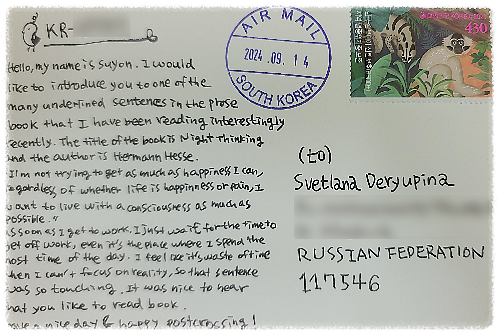 KR-
Hello, my name is suyon. I would
like to introduce you to one of the
many underlined sentences in the prose
book that I have been reading interestingly
recently. The title of the book is Night Thinking
and the author is Hermann Hesse.
"I'm not trying to get as much as happiness I can,
regardless of whether life is happinness or pain, I
want to live with a consciousness as much as
possible."
As soon as I get to work. I just wait for the time to
get off work, even it's the place where I spend the
most time of the day. I feel like it's waste of time
when I can't focus on reality, so that sentence
was so touching. It was nice to hear
that you like to read book.
Have a nice day & happy postcrossing!
AIR MAIL
2024. 09. 14
SOUTH KOREA
430
(to)
Svetlana Deryupina
RUSSIAN FEDERATION
117546